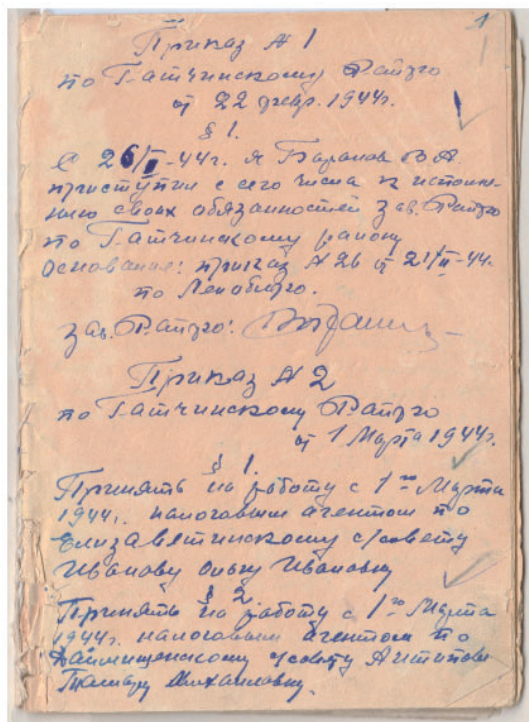 1
Приказ № 1
по Гатчинскому Райфо
от 22 февр. 1944г.
§ 1.
С 26/II-44г. я Баранов В.А.
приступил с сего числа к исполне-
нию своих обязанностей зав. Райфо
по Гатчинскому району
Основание: приказ № 26 от 21/II-44г.
по Леноблфо.
зав. Райфо:
Приказ № 2
по Гатчинскому Райфо
от 1 Марта 1944г.
§ 1.
Принять на работу с 1го Марта
1944г. налоговым агентом по
Елизаветинскому с/совету
Иванову Ольгу Ивановну
§ 2
Принять на работу с 1го Марта
1944г. налоговым агентом по
с/совету Антипову
Михайловну.